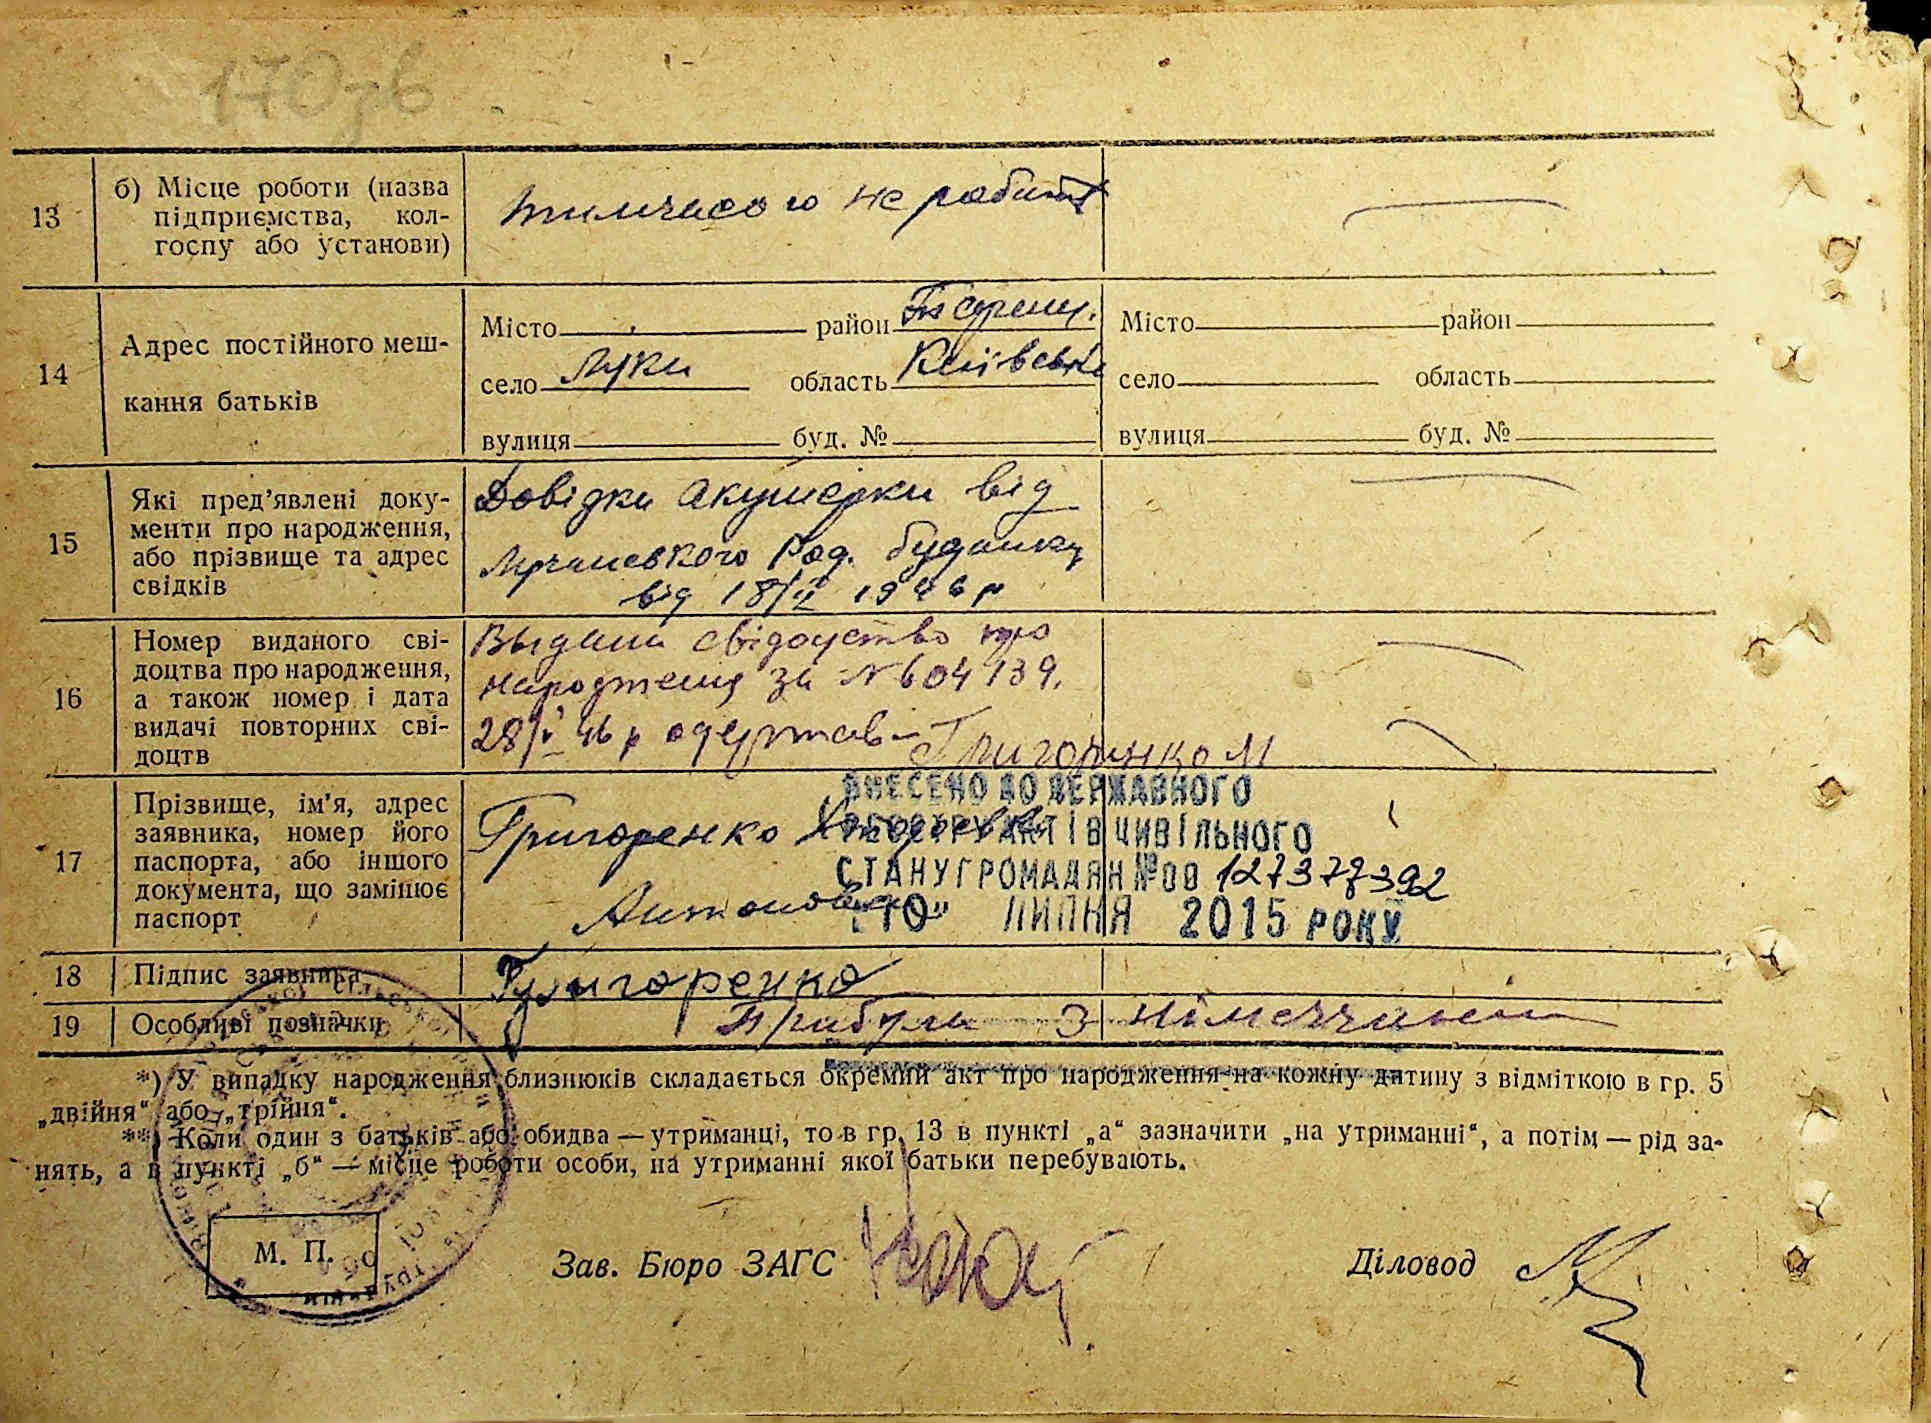 170зв
13
б) Місце роботи (назва
підприємства, кол-
госпу або установи)
тимчасово не робить
14
Адрес постійного меш-
кання батьків
Місто район
село Луки область Київська
вулиця буд. №
Місто район
село область
вулиця буд. №
15
Які пред'явлені доку-
менти про народження,
або прізвище та адрес
свідків
Довідки Акушерки від
Род. будинку
від 18/ІІ 1946 р
16
Номер виданого сві-
доцтва про народження,
а також номер і дата
видачі повторних сві-
доцтв
свідоцтво про
народження за № 604139.
28/V 46 р одержав-
Григоренко М
17
Прізвище, ім'я, адрес
заявника, номер його
паспорта, або іншого
документа, що замінює
паспорт
Григоренко
ВНЕСЕНО ДО ДЕРЖАВНОГО
РЕЄСТРУ АКТІВ ЦИВІЛЬНОГО
СТАНУ ГРОМАДЯН №00 127377392
"10" ЛИПНЯ 2015 РОКУ
18
Підпис заявника
Григоренко
19
Особливі позначки
Прибула з Німеччини
*) У випадку народження близнюків складається окремий акт про народження на кожну дитину з відміткою в гр. 5
„двійня“ або „трійня“.
**) Коли один з батьків або обидва — утриманці, то в гр. 13 в пункті „а“ зазначити „на утриманні“, а потім — рід за-
нять, а в пункті „б“ — місце роботи особи, на утриманні якої батьки перебувають.
М. П.
Зав. Бюро ЗАГС
Діловод